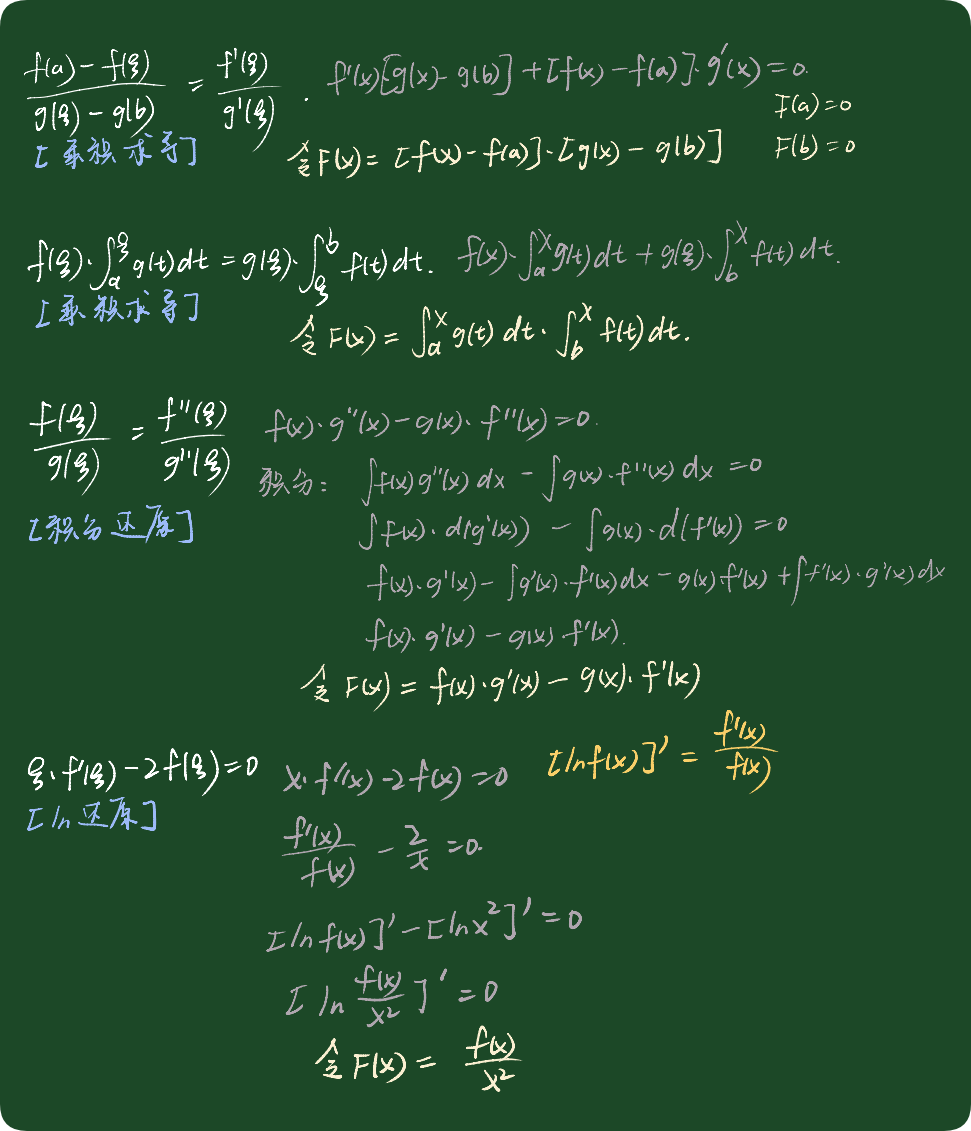 \frac{f(a)-f(ξ)}{g(ξ)-g(b)} = \frac{f'(ξ)}{g'(ξ)} . f'(x)[g(x)-g(b)]+[f(x)-f(a)]·g'(x)=0.
F(a)=0
[乘积求导] 令F(x)=[f(x)-f(a)]·[g(x)-g(b)] F(b)=0
f(ξ)·∫_a^ξ g(t)dt = g(ξ)·∫_ξ^b f(t)dt. f(x)·∫_a^x g(t)dt + g(ξ)·∫_b^x f(t)dt.
[乘积求导]
令F(x) = ∫_a^x g(t)dt·∫_b^x f(t)dt.
\frac{f(ξ)}{g(ξ)} = \frac{f''(ξ)}{g''(ξ)} f(x)·g''(x)-g(x)·f''(x)=0.
积分: ∫f(x)g''(x)dx - ∫g(x)·f''(x)dx = 0
[积分还原] ∫f(x)·d(g'(x)) - ∫g(x)·d(f'(x)) = 0
f(x)·g'(x)-∫g'(x)·f'(x)dx-g(x)·f'(x)+∫f'(x)·g'(x)dx
f(x)·g'(x)-g(x)·f'(x).
令F(x) = f(x)·g'(x)-g(x)·f'(x)
ξ·f'(ξ)-2f(ξ)=0 x·f'(x)-2f(x)=0 [lnf(x)]' = \frac{f'(x)}{f(x)}
[ln还原]
\frac{f'(x)}{f(x)} - \frac{2}{x} = 0.
[lnf(x)]'-[lnx²]'=0
[ln\frac{f(x)}{x²}]'=0
令F(x) = \frac{f(x)}{x²}